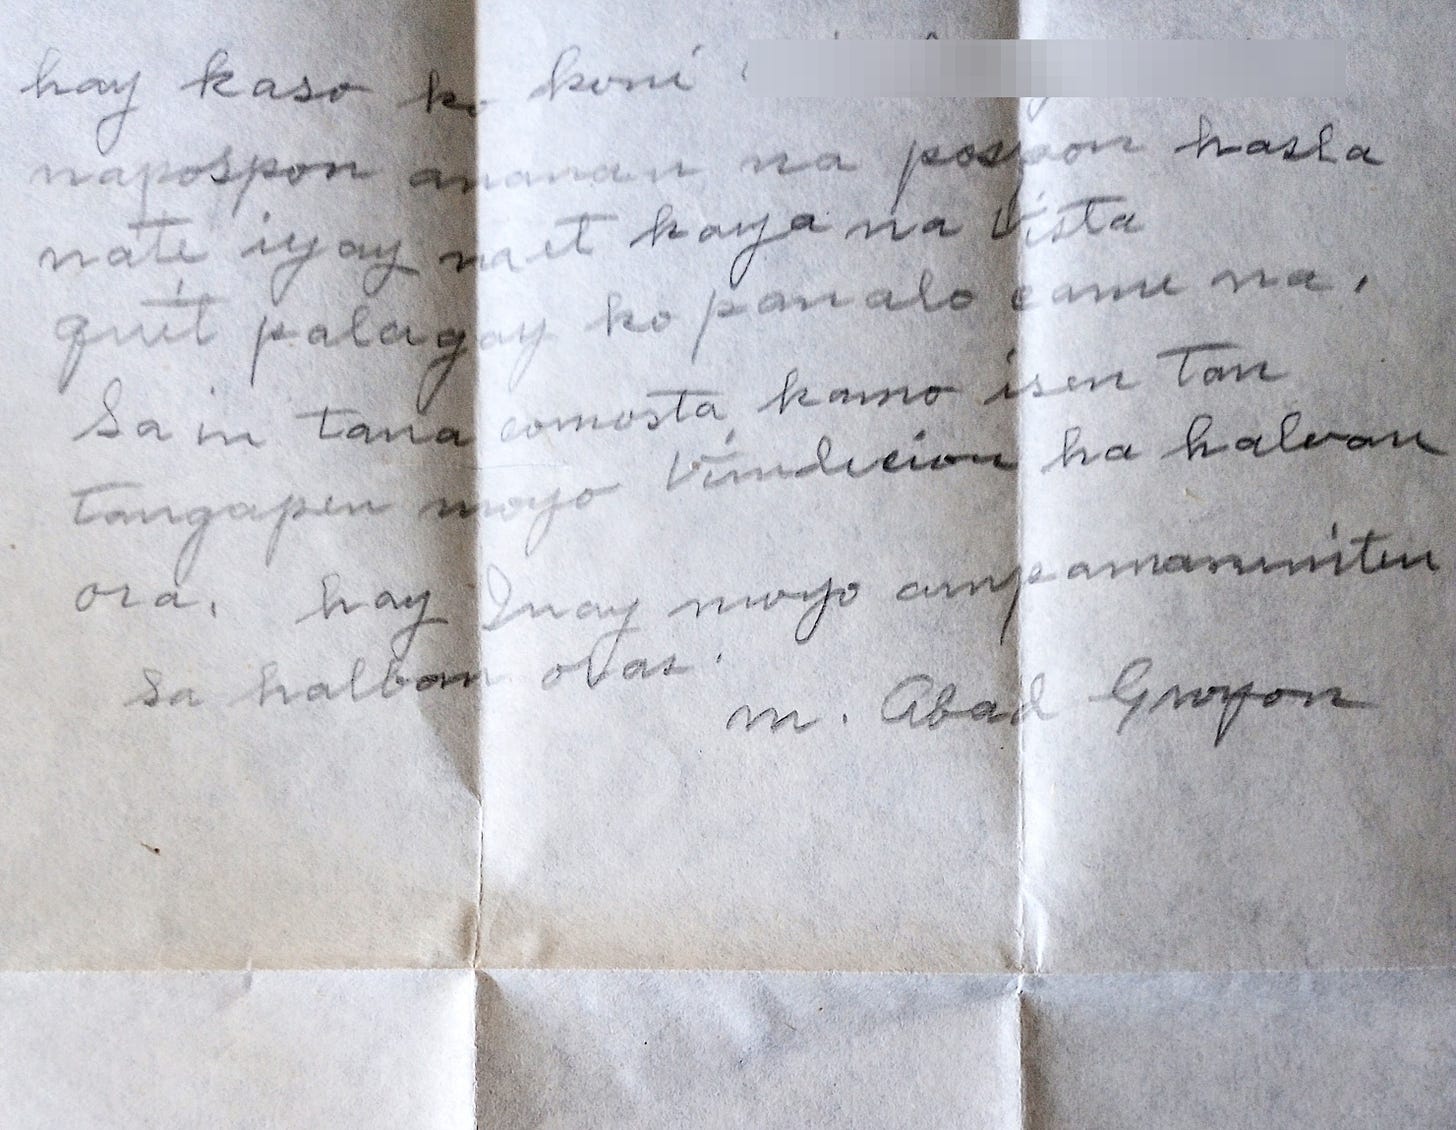 hay kaso ko koni
napospon anaman na pospon hasta
nate iyay naet kaya na Vista
quit palagay ko panalo camu na.
Sa in tana comosta kamo isen tan
tangapen moyo Vindicion ha halvan
ora. hay Inay moyo ampamanmiten
sa halban oras.
m. Abad Groyon